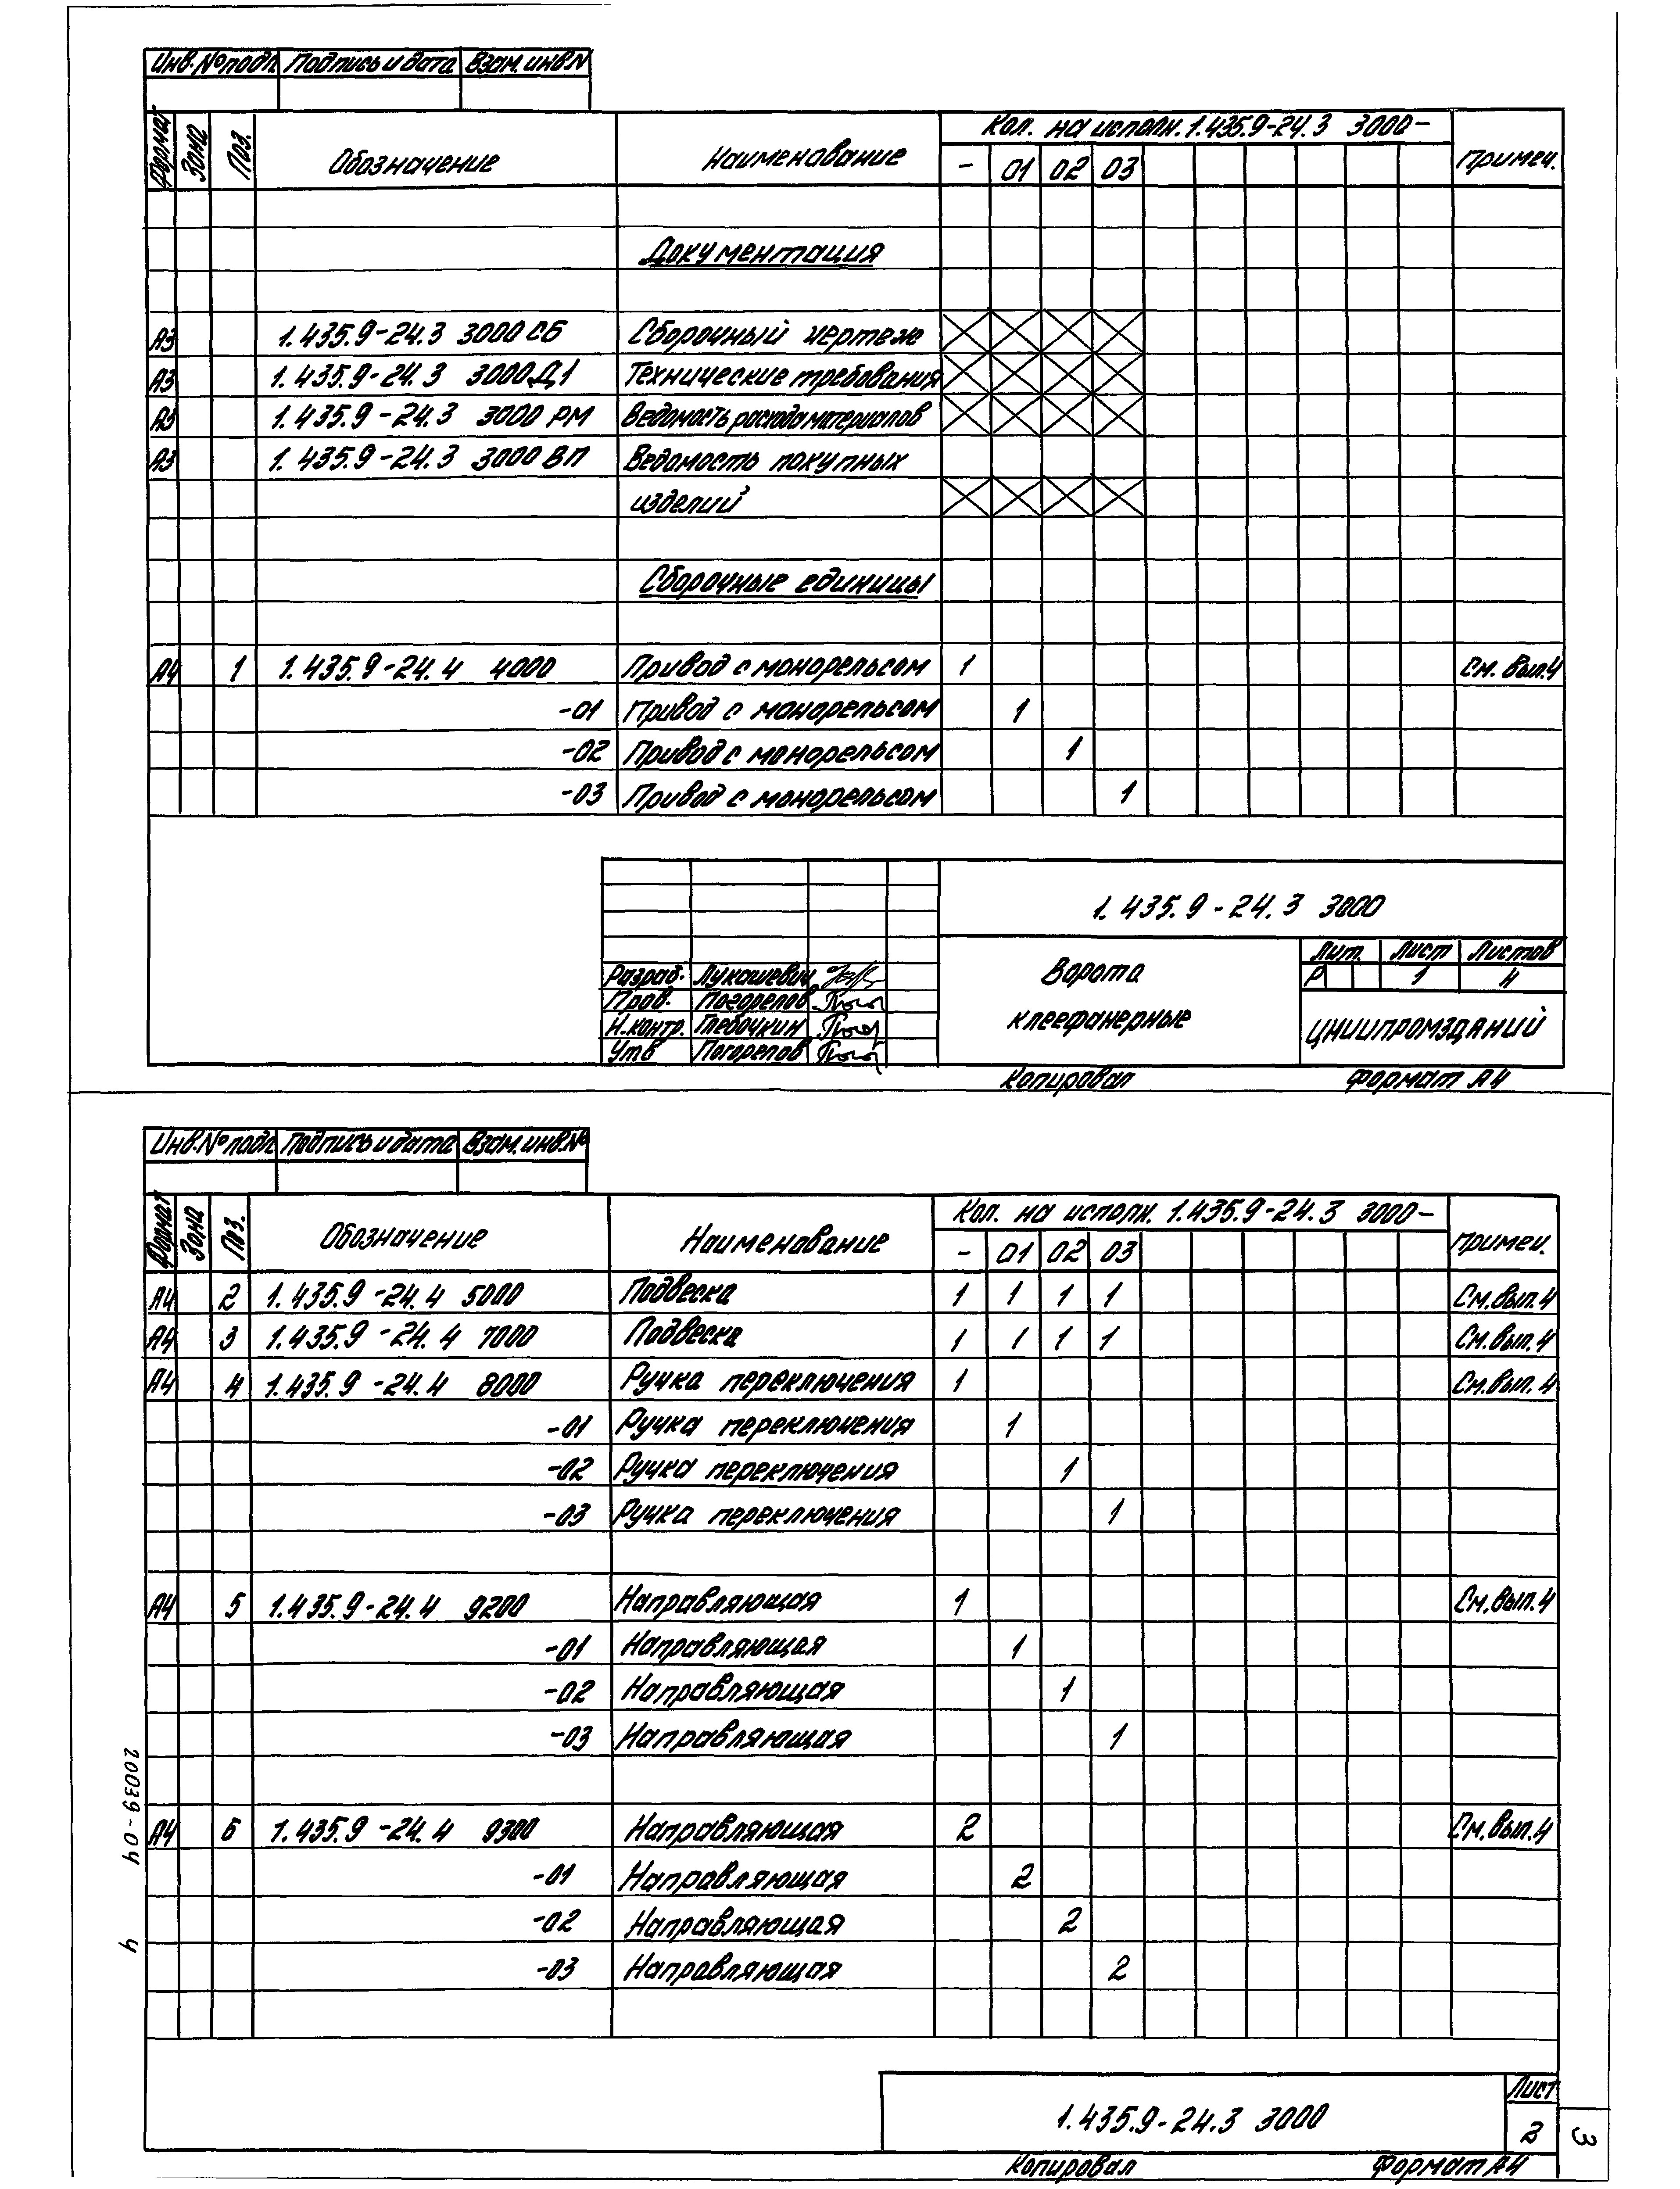 Инв.№подл. Подпись и дата Взам.инв.N
Формат Зона Поз. Обозначение Наименование Кол. на исполн. 1.435.9-24.3 3000- Примеч.
- 01 02 03
Документация
А3 1.435.9-24.3 3000 СБ Сборочный чертеж
А3 1.435.9-24.3 3000 Д1 Технические требования
А3 1.435.9-24.3 3000 РМ Ведомость расхода материалов
А3 1.435.9-24.3 3000 ВП Ведомость покупных
изделий
Сборочные единицы
А4 1 1.435.9-24.4 4000 Привод с монорельсом 1 См. вып.4
-01 Привод с монорельсом 1
-02 Привод с монорельсом 1
-03 Привод с монорельсом 1
1.435.9-24.3 3000
Разраб. Лукашевич
Пров. Погорелов
Н.контр. Глебочкин
Утв Погорелов
Ворота
клеефанерные
Лит. Лист Листов
Р 1 4
ЦНИИПРОМЗДАНИЙ
Копировал Формат А4
Инв.№подл. Подпись и дата Взам.инв.№
Формат Зона Поз. Обозначение Наименование Кол. на исполн. 1.435.9-24.3 3000- Примеч.
- 01 02 03
А4 2 1.435.9-24.4 5000 Подвеска 1 1 1 1 См.вып.4
А4 3 1.435.9-24.4 7000 Подвеска 1 1 1 1 См.вып.4
А4 4 1.435.9-24.4 8000 Ручка переключения 1 См.вып.4
-01 Ручка переключения 1
-02 Ручка переключения 1
-03 Ручка переключения 1
А4 5 1.435.9-24.4 9200 Направляющая 1 См.вып.4
-01 Направляющая 1
-02 Направляющая 1
-03 Направляющая 1
А4 6 1.435.9-24.4 9300 Направляющая 2 См.вып.4
-01 Направляющая 2
-02 Направляющая 2
-03 Направляющая 2
20039-04 4
1.435.9-24.3 3000
Лист
2
3
Копировал Формат А4